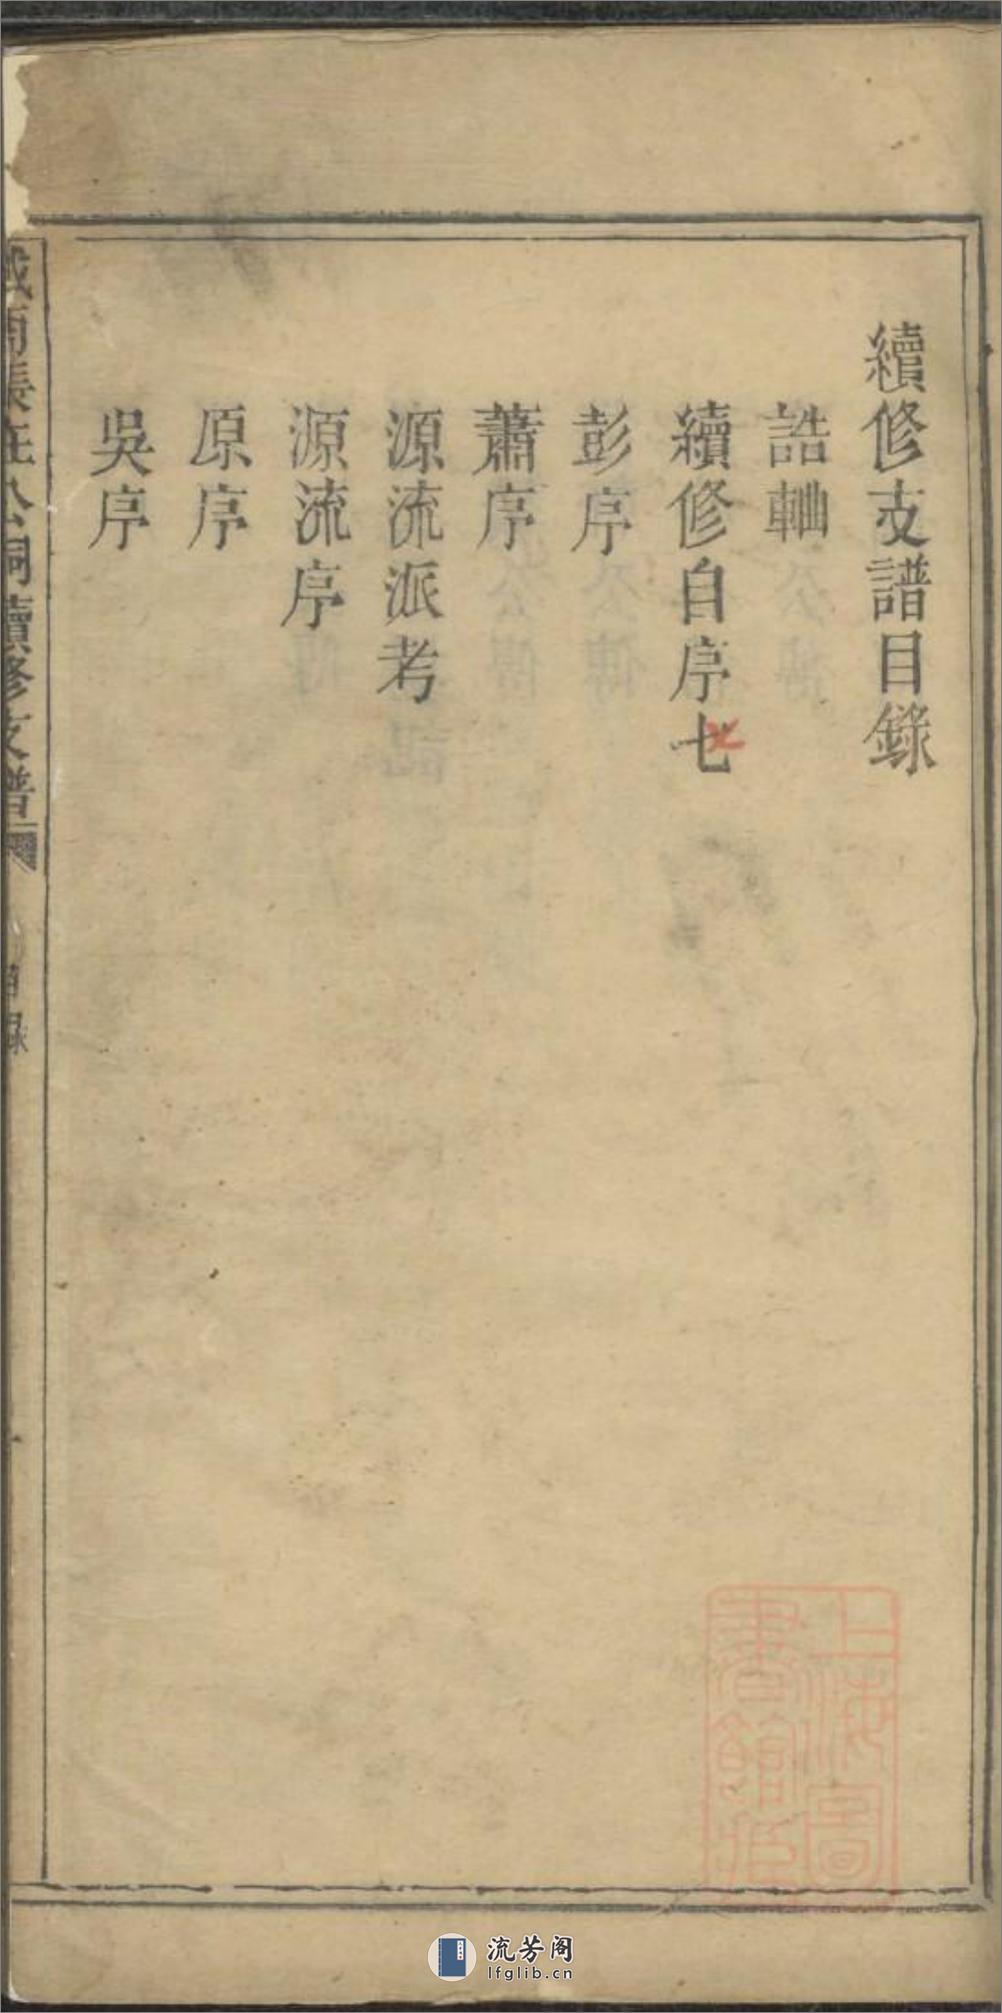 續修支譜目錄
誥軸
續修自序七
彭序
蕭序
源流派考
源流序
原序
吳序
續修支譜
目錄
上海圖
書館藏
流芳阁
lfglib.cn